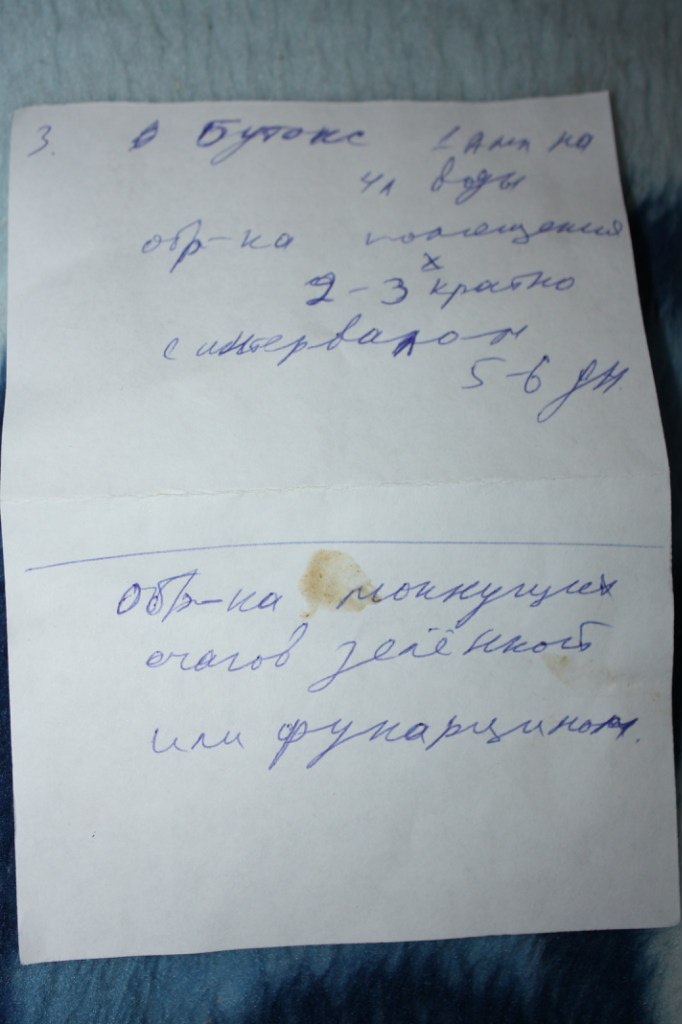 3. Бутокс 1 амп на
4л воды
обр-ка помещения
2-3х кратно
с интервалом
5-6 дн.
Обр-ка мокнущих
очагов зелёнкой
или фукарцином.